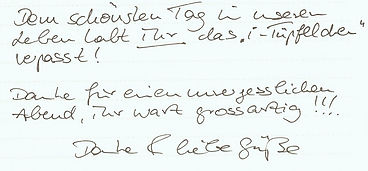 Dem schönsten Tag in unserem
Leben habt Ihr das „i-Tüpfelchen"
verpasst!
Danke für einen unvergesslichen
Abend, ihr wart grossartig!!!
Danke & liebe Grüße